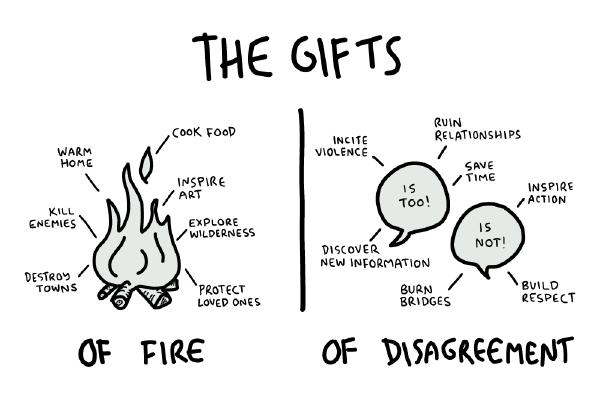 THE GIFTS
COOK FOOD
WARM
HOME
INSPIRE
ART
KILL
ENEMIES
EXPLORE
WILDERNESS
DESTROY
TOWNS
PROTECT
LOVED ONES
OF FIRE
RUIN
RELATIONSHIPS
INCITE
VIOLENCE
SAVE
TIME
IS
TOO!
INSPIRE
ACTION
IS
NOT!
DISCOVER
NEW INFORMATION
BURN
BRIDGES
BUILD
RESPECT
OF DISAGREEMENT